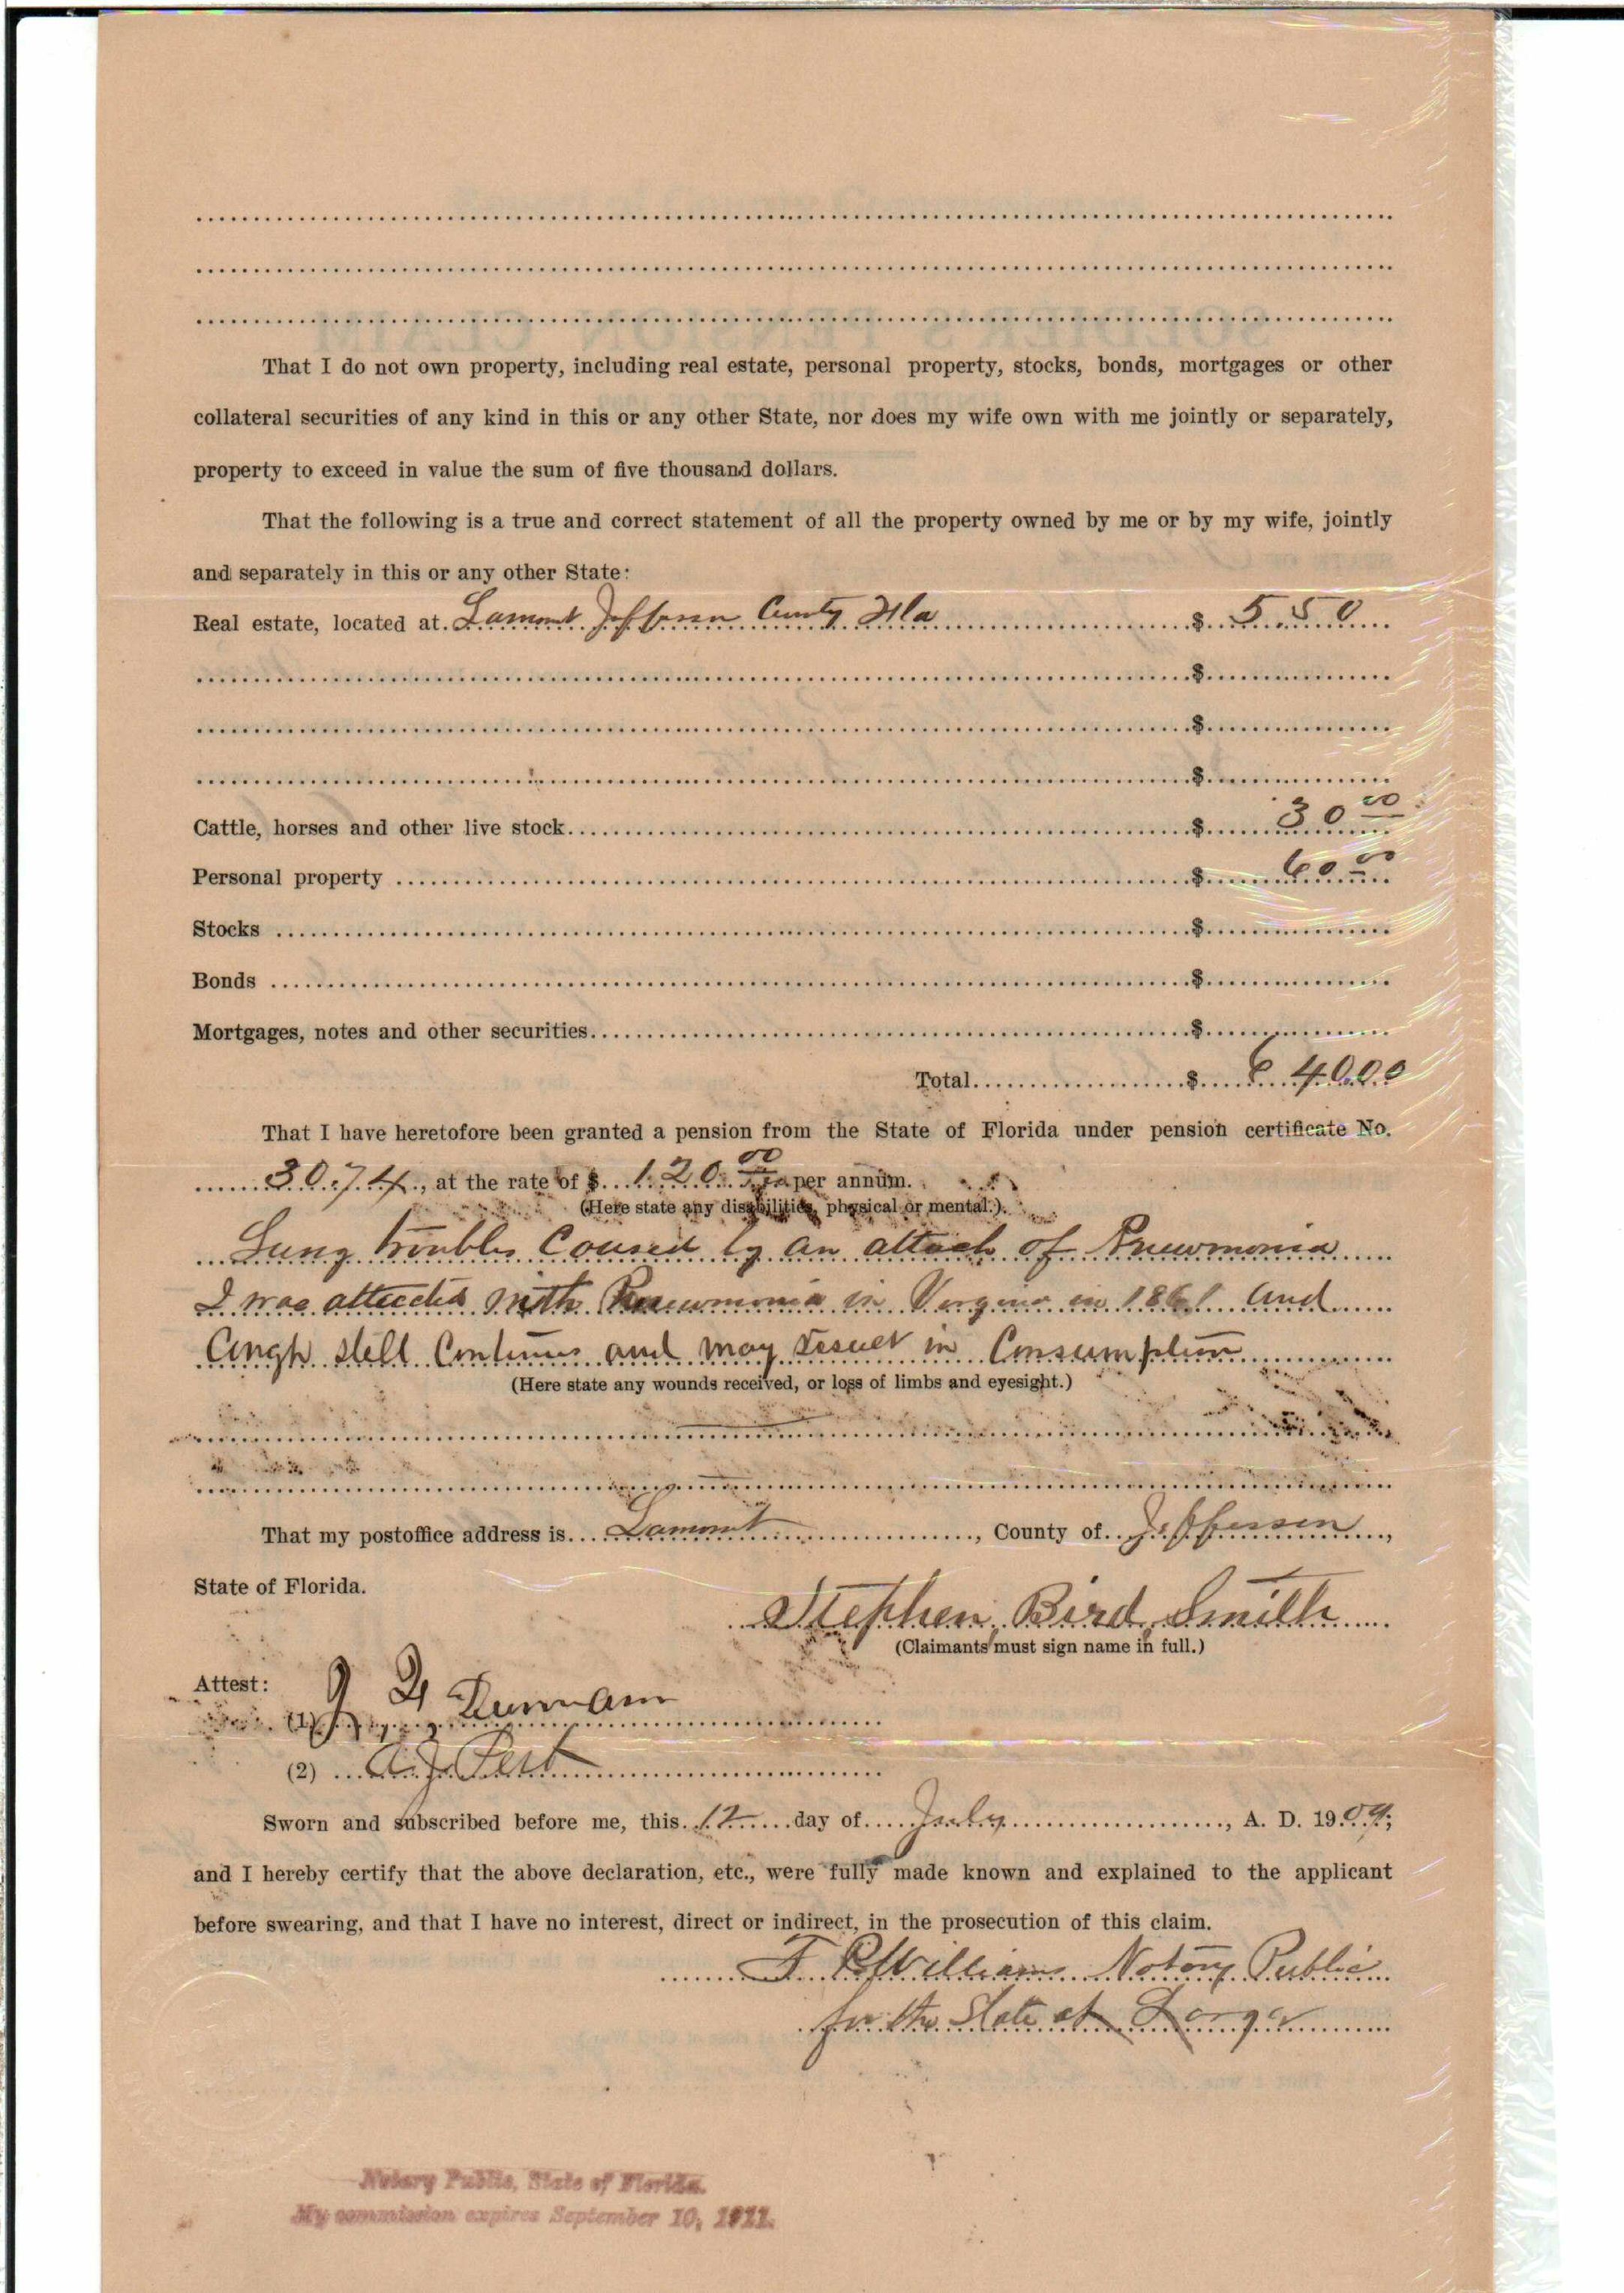 That I do not own property, including real estate, personal property, stocks, bonds, mortgages or other
collateral securities of any kind in this or any other State, nor does my wife own with me jointly or separately,
property to exceed in value the sum of five thousand dollars.
That the following is a true and correct statement of all the property owned by me or by my wife, jointly
and separately in this or any other State:
Real estate, located at Lamont Jefferson County Fla $ 550
$
$
$
Cattle, horses and other live stock $ 30 00
Personal property $ 60 00
Stocks $
Bonds $
Mortgages, notes and other securities $
Total $ 640.00
That I have heretofore been granted a pension from the State of Florida under pension certificate No.
3074, at the rate of $ 120 00 per annum.
(Here state any disabilities, physical or mental.)
Lung troubles Coused by an attack of Pneumonia
I was attected with Pneumonia in Virginia in 1861 and
Cough still Continues and may result in Consumption
(Here state any wounds received, or loss of limbs and eyesight.)
That my postoffice address is Lamont, County of Jefferson,
State of Florida.
Stephen Bird Smith
(Claimants must sign name in full.)
Attest:
(1)
(2) A. J.
Sworn and subscribed before me, this 12 day of July, A. D. 1909;
and I hereby certify that the above declaration, etc., were fully made known and explained to the applicant
before swearing, and that I have no interest, direct or indirect, in the prosecution of this claim.
Williams Notory Public
for the State at Large
Notary Public, State of Florida.
My commission expires September 10, 1911.